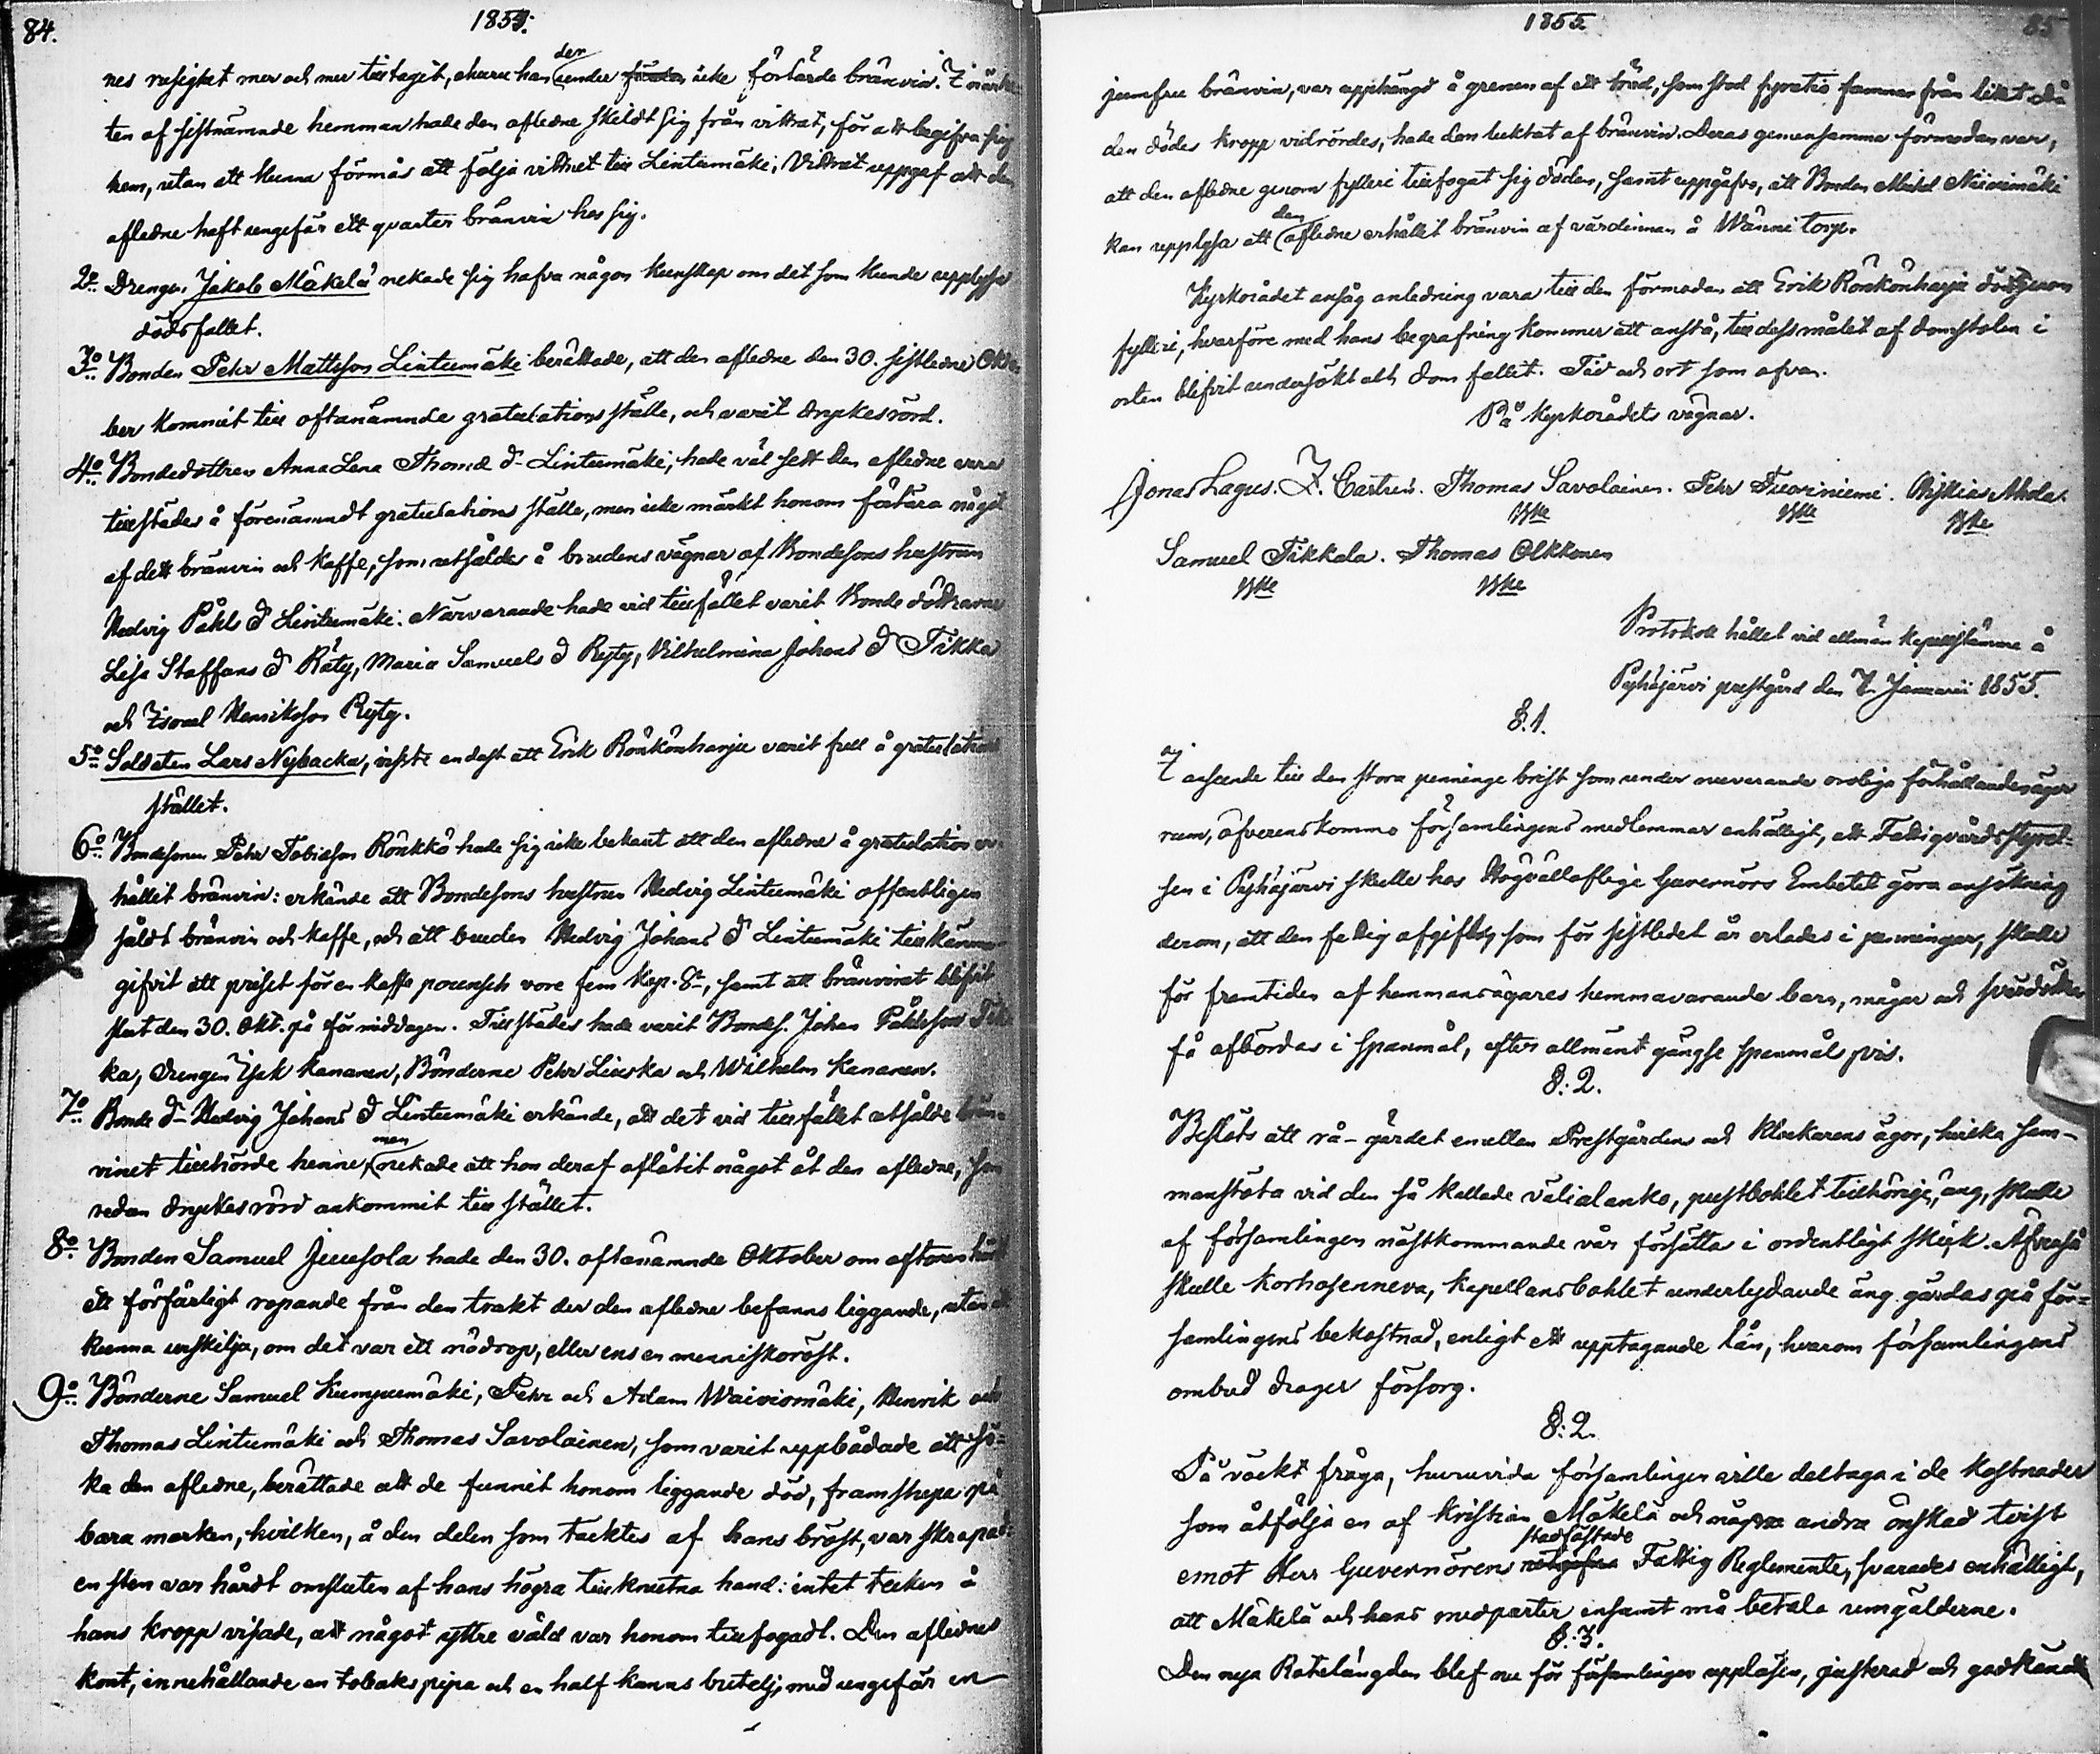 84.
1854.
nes rusighet mer och mer tilltagit, ehuru han den under icke förtärde bränvin. I närhe-
ten af sistnämnde hemman hade den aflidne skildt sig från vittnet, för att begifva sig
hem, utan att kunna förmås att följa vittnet till Lintumäki. Vittnet uppgaf att den
aflidne haft ungefär ett qvarter bränvin hos sig.
2o Drengen Jakob Mäkelä nekade sig hafva någon kunskap om det som kunde upplysa
dödsfallet.
3o Bonden Pehr Mattsson Lintumäki berättade, att den aflidne den 30. sistledne Okto-
ber kommit till oftanämnde gratulations ställe, och varit dryckesrörd.
4o Bondedottren Anna Lena Thomæ dr Lintumäki, hade väl sett den aflidne vara
tillstädes å förenämndt gratulations ställe, men icke märkt honom förtära något
af dett bränvin och kaffe, som utsåldes å brudens vägnar af Bondesons hustrun
Hedvig Påhls dr Lintumäki. Närvarande hade vid tillfället varit Bonde döttrarne
Lisa Staffans dr Räty, Maria Samuels dr Ryty, Vilhelmina Johans dr Tikka
och Israel Henriksson Ryty.
5o Soldaten Lars Nybacka, visste endast att Erik Rönkönharju varit full å gratulations
stället.
6o Bondesonen Pehr Tobiasson Rönkkö hade sig icke bekant att den aflidne å gratulation er-
hållit bränvin: erkände att Bondesons hustrun Hedvig Lintumäki offentligen
såldt bränvin och kaffe, och att bruden Hedvig Johans dr Lintumäki tillkänna
gifvit att priset för en kaffe pounsch vore fem kop. Sr, samt att bränvinet blifvit
slut den 30. Okt. på förmiddagen. Tillstädes hade varit Bondes. Johan Påhlsson Tik-
ka, drengen Isak Kananen, Bönderne Pehr Liuska och Wilhelm Kananen.
7o Bonde dr Hedvig Johans dr Lintumäki erkände, att det vid tillfället utsålde brän-
vinet tillhörde henne, men nekade att hon deraf aflåtit något åt den aflidne, som
redan dryckesrörd ankommit till stället.
8o Bonden Samuel Juusola hade den 30. oftanämnde Oktober om aftonen hört
ett förfärligt ropande från den trakt der den aflidne befanns liggande, utan att
kunna urskilja, om det var ett nödrop, eller ens en menniskoröst.
9o Bönderne Samuel Kumpumäki, Pehr och Adam Waiviomäki, Henrik och
Thomas Lintumäki och Thomas Savolainen, som varit uppbådade att sö-
ka den aflidne, berättade att de funnit honom liggande död, framstupa på
bara marken, hvilken, å den delen som täcktes af hans bröst, var skrapad:
en sten var hårdt omsluten af hans högra tillknutna hand: intet tecken å
hans kropp visade, att något yttre våld var honom tillfogadt. Den aflidnes
kont, innehållande en tobakspipa och en half kannas butelj, med ungefär en
1855.
85
jumfru bränvin, var upphängd å grenen af ett träd, som stod fyratio famnar från liket. Då
den dödes kropp vidrördes, hade den luktat af bränvin. Deras gemensamma förmodan var,
att den aflidne genom fylleri tillfogat sig döden, samt uppgåfvo, att Bonden Mickel Niinimäki
kan upplysa att den aflidne erhållit bränvin af värdinnan å Wänni torp.
Kyrkorådet ansåg anledning vara till den förmodan att Erik Rönkönharju dödt genom
fylleri, hvarföre med hans begrafning kommer att anstå, till dess målet af domstolen i
orten blifvit undersökt och dom fallit. Tid och ort som ofvan.
På Kyrkorådets vägnar.
Jonas Lagus. Z. Castrén. Thomas Savolainen. Pehr Tuoriniemi. Chiskias Ahola.
Samuel Tikkala. Thomas Olkkonen
Protokoll hållet vid allmän kapellstämma å
Pyhäjärvi prestgård den 7. Januarii 1855.
§.1.
I anseende till den stora penninge brist som under nuvarande oroliga förhållanden äger
rum, öfverenskommo församlingens medlemmar enhälligt, att Fattigvårdsstyrel-
sen i Pyhäjärvi skulle hos Högvällofliga Guvernörs Embetet göra ansökning
derom, att den fattig afgifter, som för sistledet år erlades i penningar, skulle
för framtiden af hemmansägares hemmavarande barn, mågar och sonhustrur
få afbördas i spanmål, efter allmänt gängse spanmåls pris.
§:2.
Beslöts att rå-gärdet emellan Prestgårdens och Klockarens ägor, hvilka sam-
manstöta vid den så kallade välialanko, prestbohlet tillhörige, äng, skulle
af församlingen nästkommande vår försättas i ordentligt skick. Äfvenså
skulle Korhosenneva, Kapellansbohlet underlydande äng gärdas på för-
samlingens bekostnad, enligt ett upptagande lån, hvarom församlingens
ombud drager försorg.
§:2.
På väckt fråga, huruvida församlingen ville deltaga i de kostnader
som åtfölja en af Kristian Mäkelä och några andra önskad tvist
emot Herr Guvernörens stadfästade Fattig Reglemente, svarades enhälligt,
att Mäkelä och hans medparter ensamt må betala umgälderne.
§.3.
Den nya Rotelängden blef nu för församlingen uppläsen, justerad och godkänd